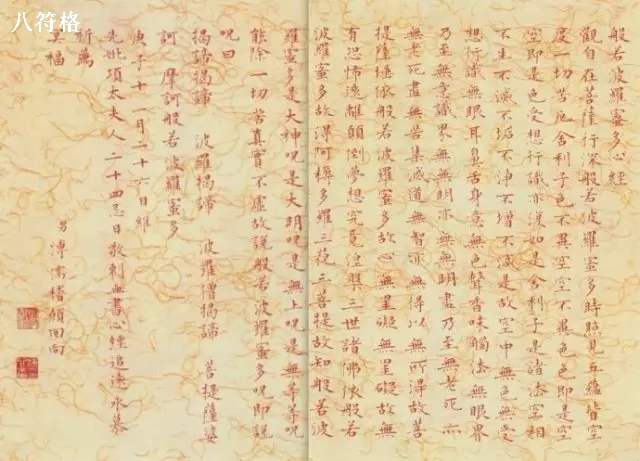 八符格
般若波羅蜜多心經
觀自在菩薩行深般若波羅蜜多時照見五蘊皆空
度一切苦厄舍利子色不異空空不異色色即是空
空即是色受想行識亦復如是舍利子是諸法空相
不生不滅不垢不淨不增不減是故空中無色無受
想行識無眼耳鼻舌身意無色聲香味觸法無眼界
乃至無意識界無無明亦無無明盡乃至無老死亦
無老死盡無苦集滅道無智亦無得以無所得故菩
提薩埵依般若波羅蜜多故心無罣礙無罣礙故無
有恐怖遠離顛倒夢想究竟涅槃三世諸佛依般若
波羅蜜多故得阿耨多羅三藐三菩提故知般若波
羅蜜多是大神呪是大明呪是無上呪是無等等呪
能除一切苦真實不虛故說般若波羅蜜多呪即說
呪曰
揭諦揭諦 波羅揭諦 波羅僧揭諦 菩提薩婆
訶 摩訶般若波羅蜜多
庚子十一月二十六日維
先妣項太夫人二十四忌日敬刺血書心經追遠永慕
祈萬
福
男溥儒稽顙回向